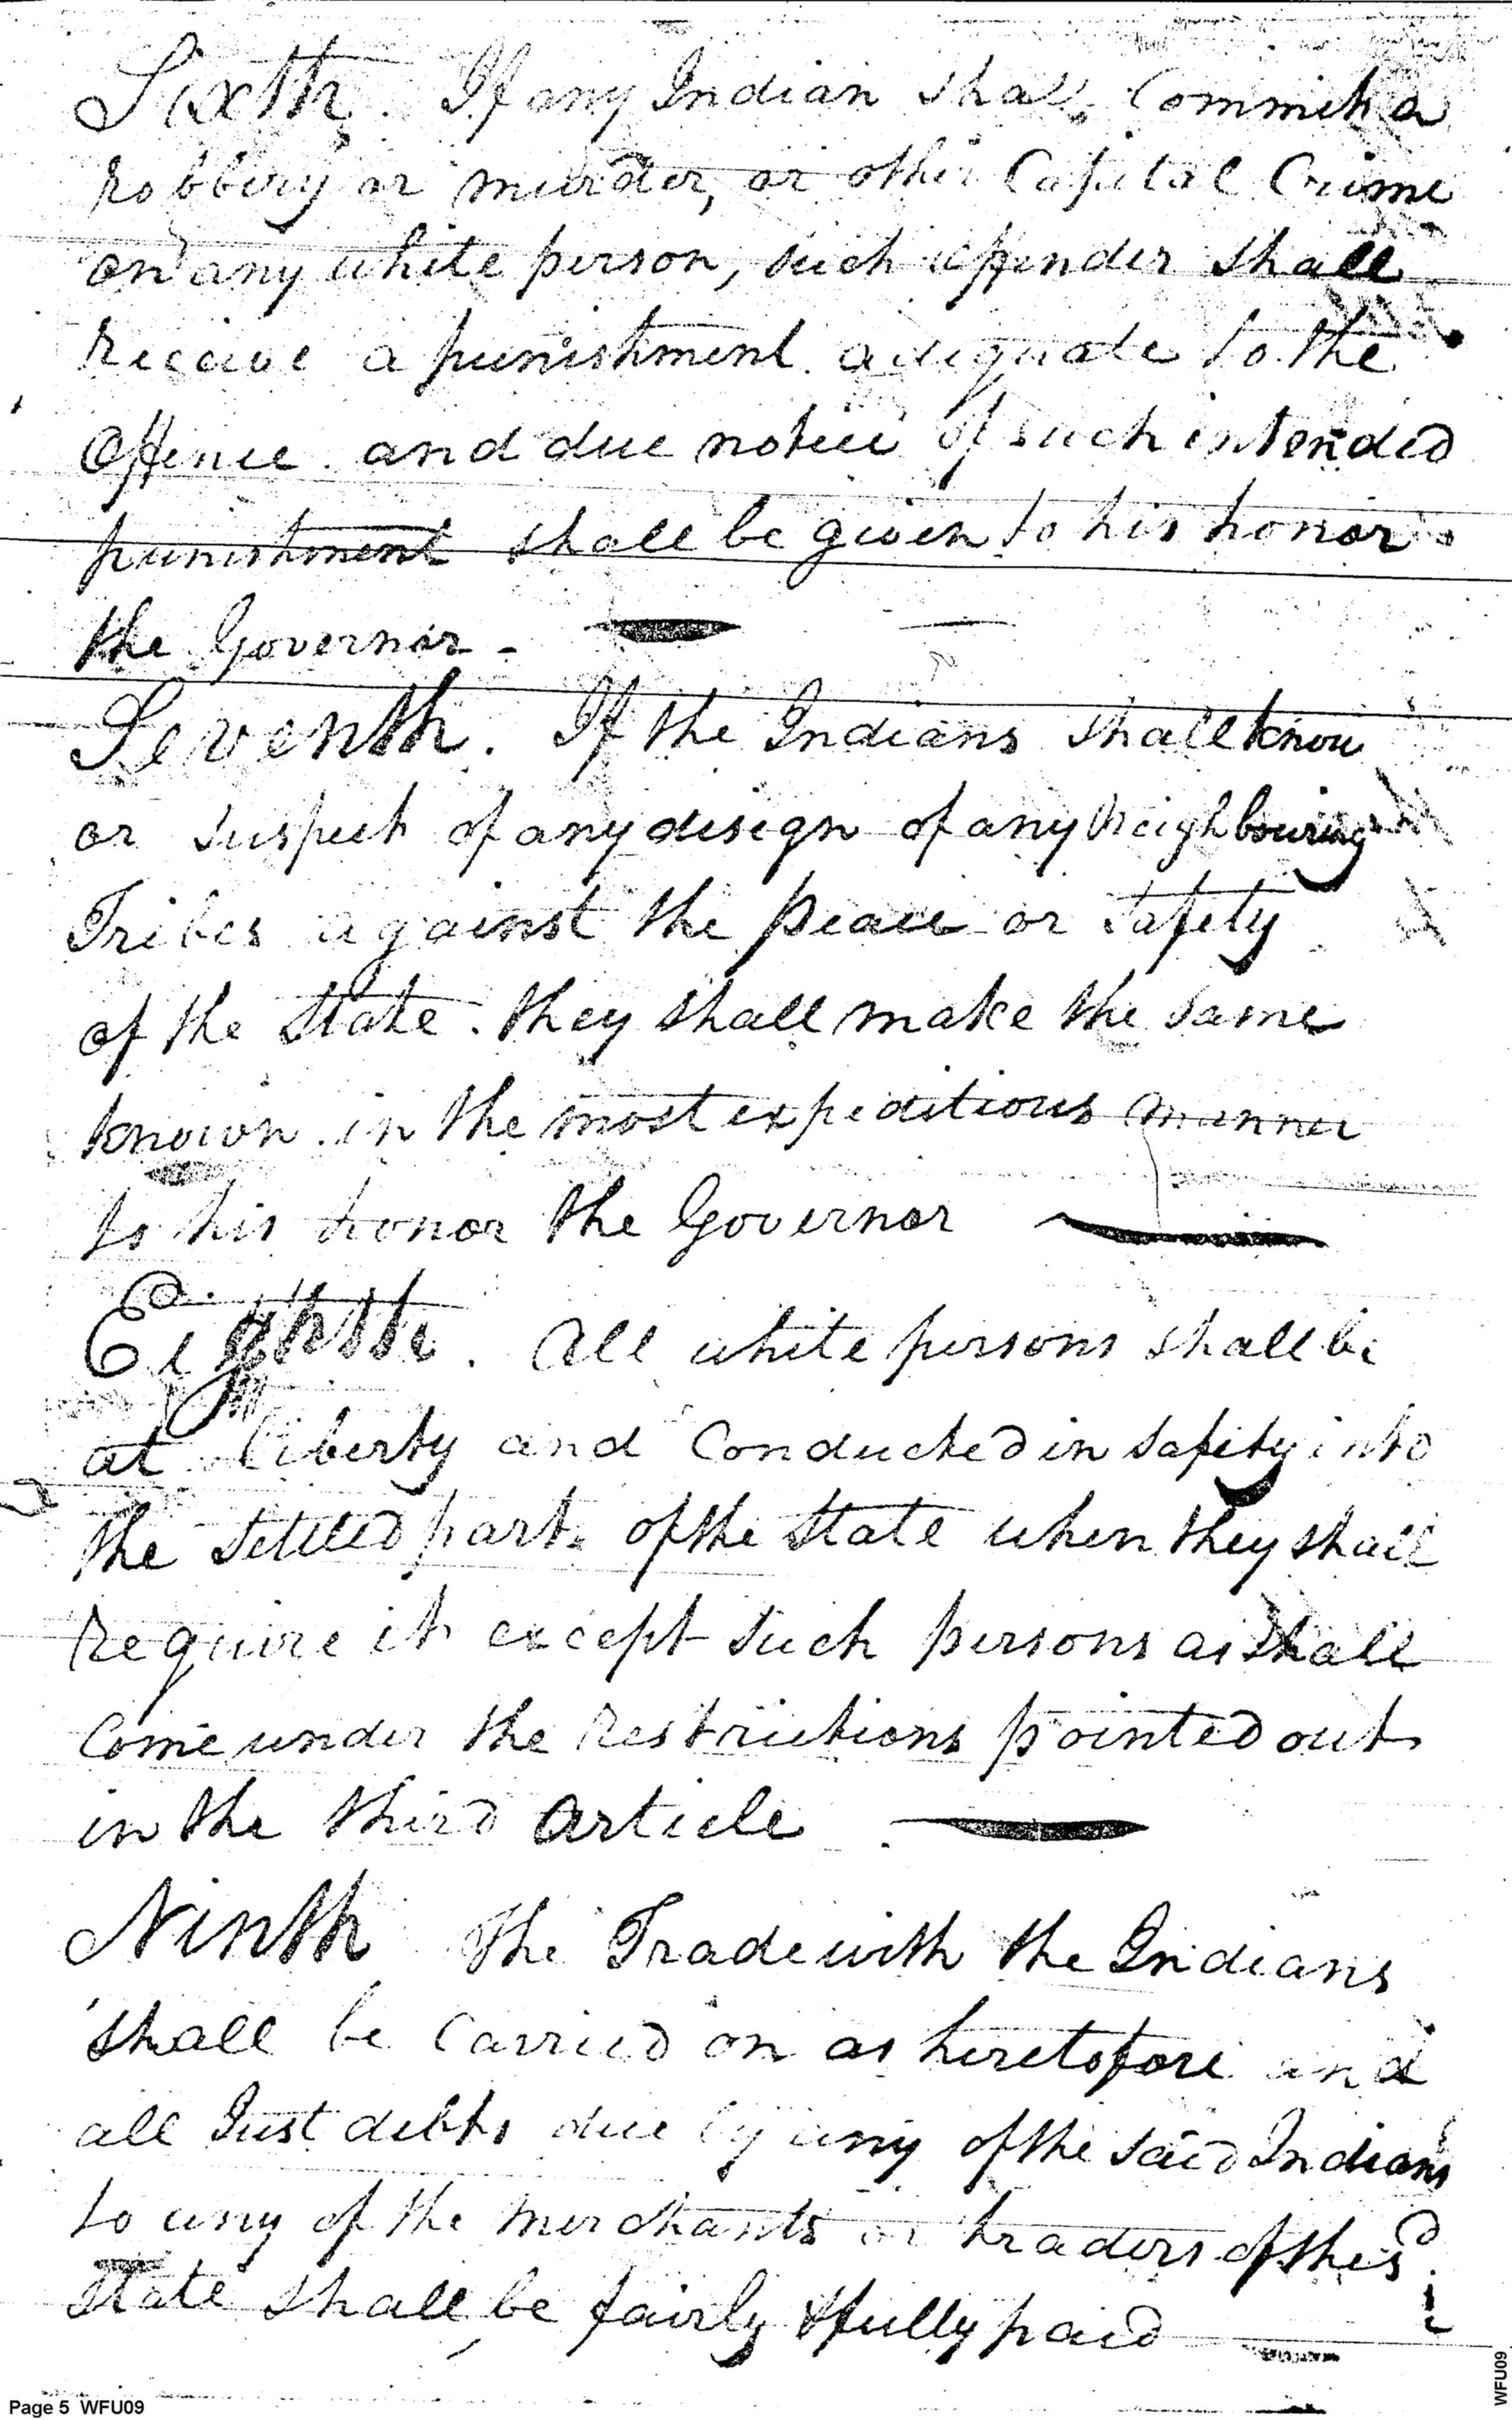 Sixth. If any Indian shall Commit a
robbery or murder, or other Capital Crime
on any white person, such offender shall
receive a punishment adequate to the
Offence and due notice of such intended
punishment shall be given to his honor
the Governor -
Seventh. If the Indians shall know
or suspect of any design of any Neighbouring
Tribes against the peace or safety
of the State. they shall make the same
known in the most expeditious manner
to his honor the Governor
Eighth. All white persons shall be
at liberty and Conducted in safety into
the settled part of the State when they shall
require it except such persons as shall
Come under the restrictions pointed out
in the third article
Ninth The Trade with the Indians
shall be Carried on as heretofore and
all Just debts due by any of the said Indians
to any of the merchants or traders of this
State shall be fairly & fully paid
Page 5 WFU09
WFU09